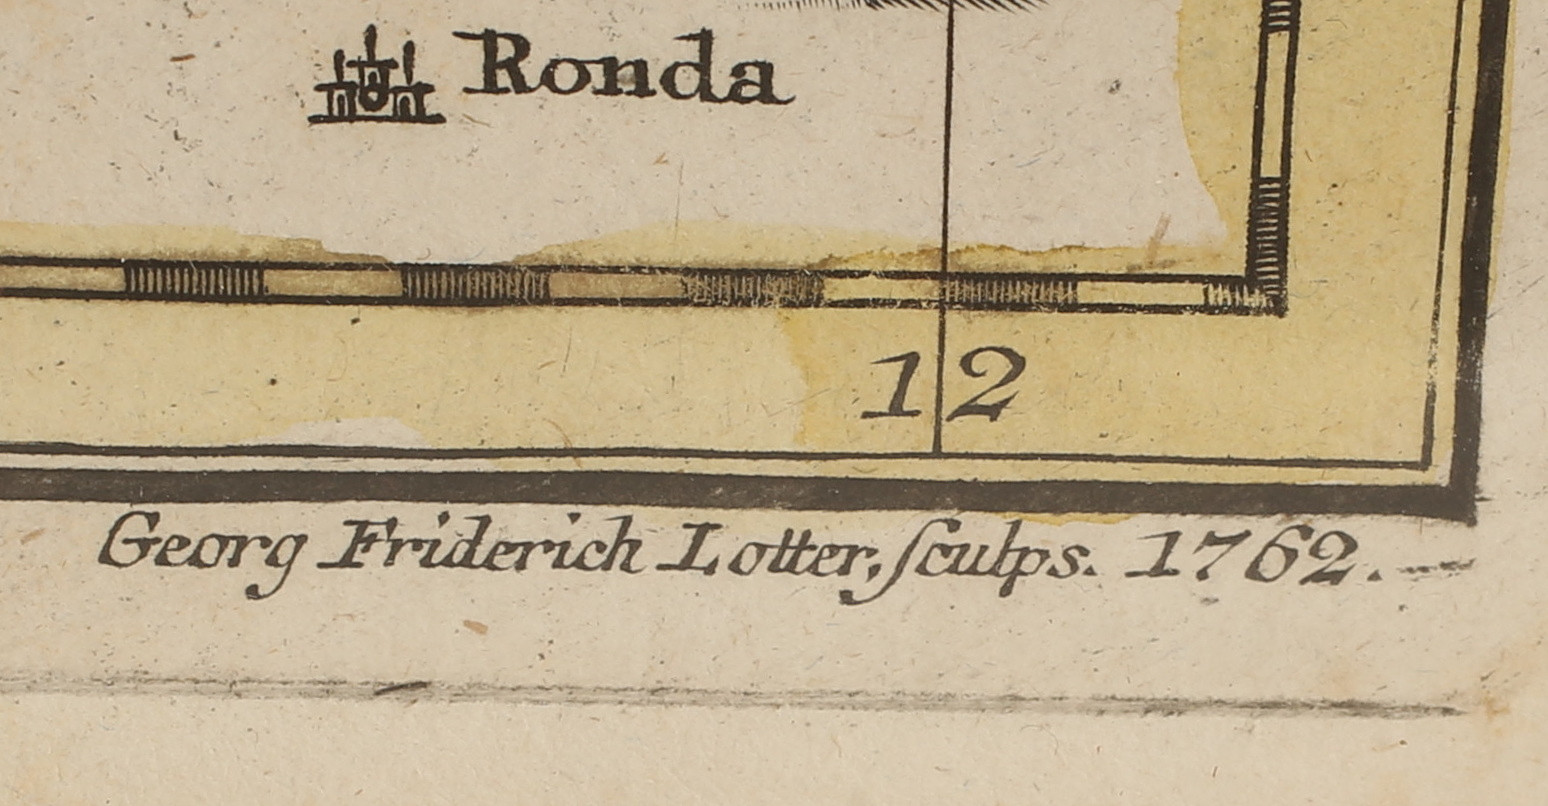 Ronda
12
Georg Friderich Lotter, ſculps. 1762.